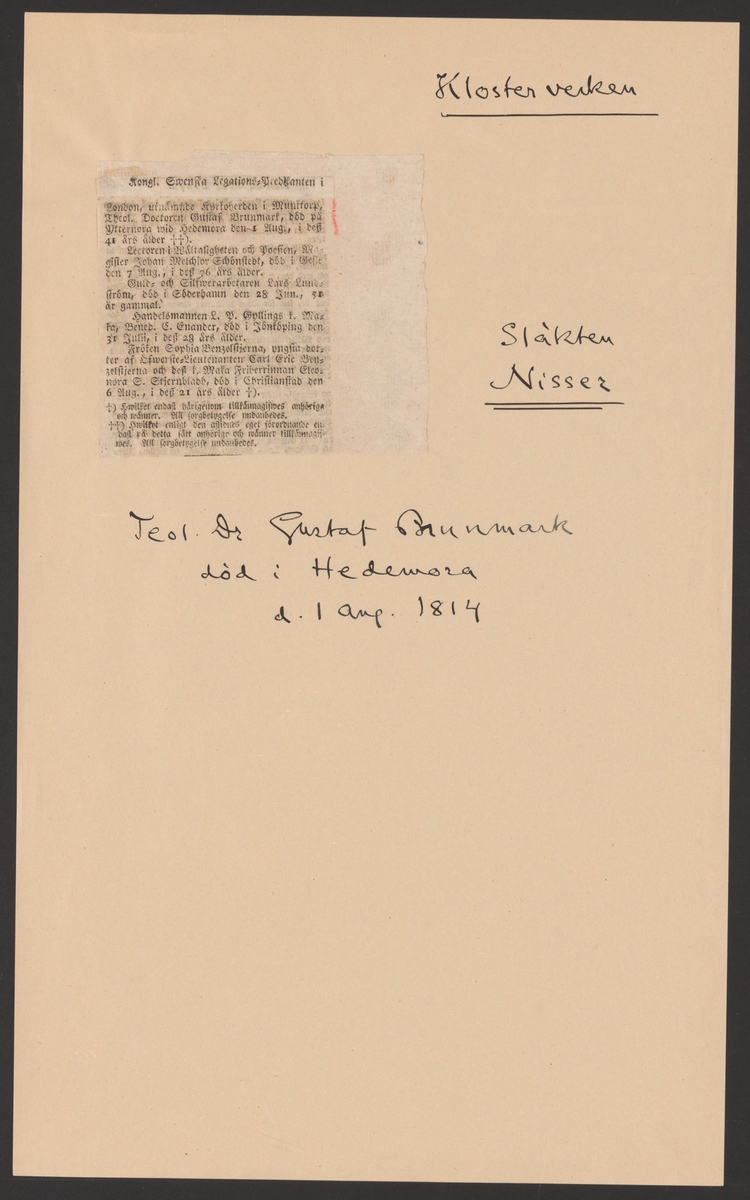 Klosterverken
Kongl. Swenska Legations-Predikanten i
London, utnämnde Kyrkoherden i Munktorp,
Theol. Doctoren Gustaf Brunmark, död på
Ytternora wid Hedemora den 1 Aug., i deß
41 års ålder ††).
Lectoren i Wältaligheten och Poesien, Ma-
gister Johan Melchior Schönstedt, död i Gefle
den 7 Aug., i deß 76 års ålder.
Guld- och Silfwerarbetaren Lars Lund-
ström, död i Söderhamn den 28 Jun., 51
år gammal.
Handelsmannen L. P. Gyllings k. Ma-
ka, Bened. C. Enander, död i Jönköping den
31 Julii, i deß 28 års ålder.
Fröken Sophia Benzelstjerna, yngsta dot-
ter af Öfwerste-Lieutenanten Carl Eric Ben-
zelstjerna och deß k. Maka Friherrinnan Eleo-
nora S. Stjernbladh, död i Christianstad den
6 Aug., i deß 21 års ålder †).
†) Hwilket endast härigenom tillkännagifwes anhöriga
och wänner. All sorgbetygelse undanbedes.
††) Hwilket enligt den aflidnes eget förordnande en-
dast på detta sätt anhörige och wänner tillkännagif-
wes. All sorgbetygelse undanbedes.
Släkten
Nisser
Teol. Dr Gustaf Brunmark
död i Hedemora
d. 1 Aug. 1814